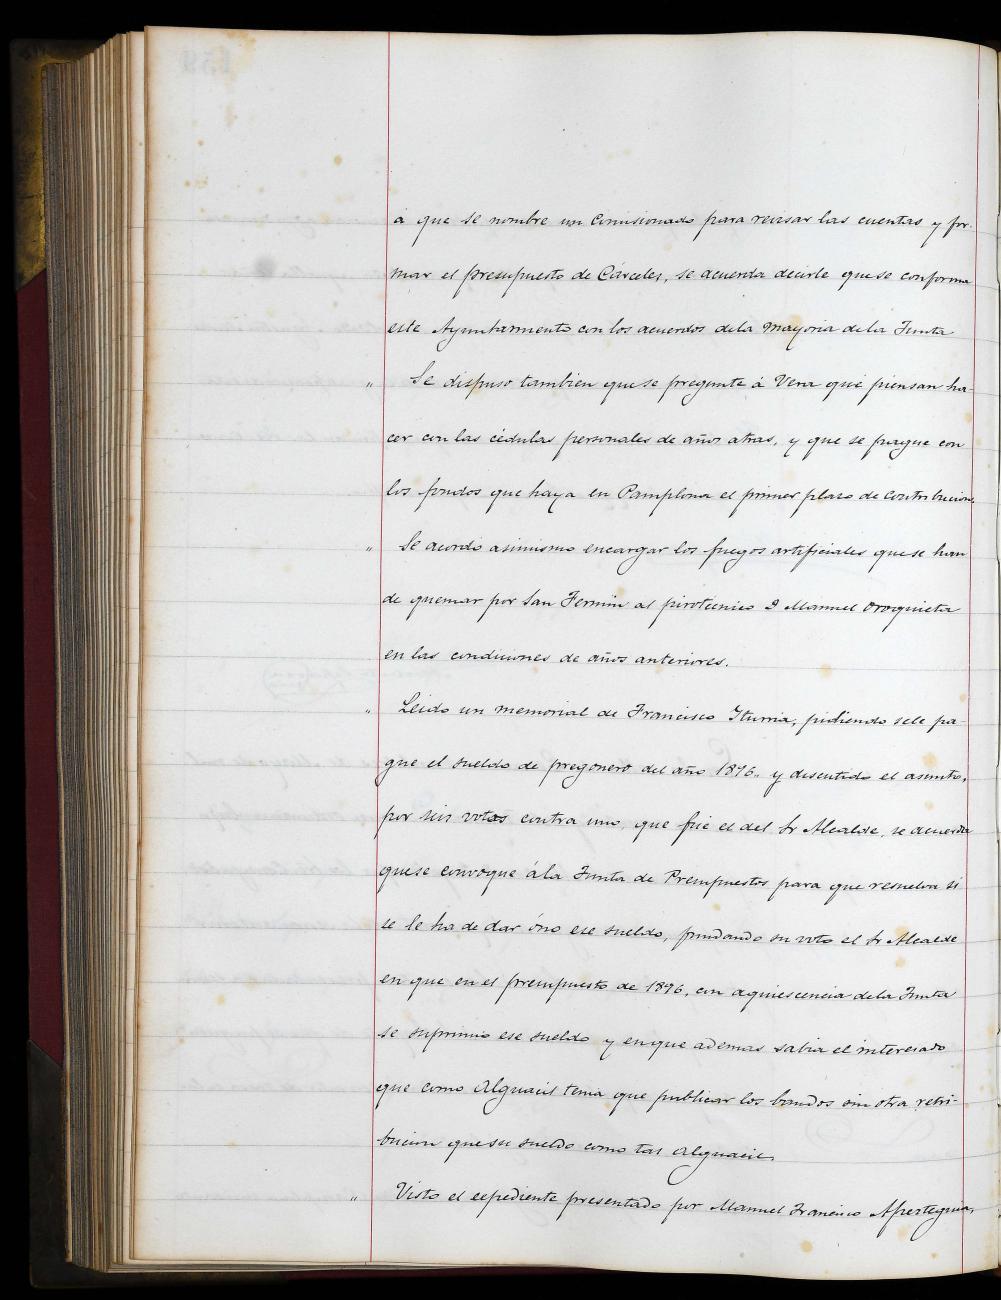 á que se nombre un Comisionado para revisar las cuentas y for-
mar el presupuesto de Cárceles, se acuerda decirle que se conforma
este Ayuntamiento con los acuerdos de la Mayoria de la Junta
" Se dispuso tambien que se pregunte á Vera que piensan ha-
cer con las cédulas personales de años atras, y que se pague con
los fondos que haya en Pamplona el primer plazo de contribucion.
" Se acordó asimismo encargar los fuegos artificiales que se han
de quemar por San Fermin al pirotécnico D Manuel Oroquieta
en las condiciones de años anteriores.
" Leido un memorial de Francisco Iturria, pidiendo se le pa-
gue el sueldo de pregonero del año 1896. y discutido el asunto,
por seis votos contra uno, que fué el del Sr Alcalde, se acuerda
que se convoque á la Junta de Presupuestos para que resuelva si
se le ha de dar ó no ese sueldo, fundando su voto el Sr Alcalde
en que en el presupuesto de 1896, con aquiescencia de la Junta
se suprimio ese sueldo y en que ademas sabia el interesado
que como Alguacil tenia que publicar los bandos sin otra retri-
bucion que su sueldo como tal Alguacil.
" Visto el espediente presentado por Manuel Francisco Apesteguia,